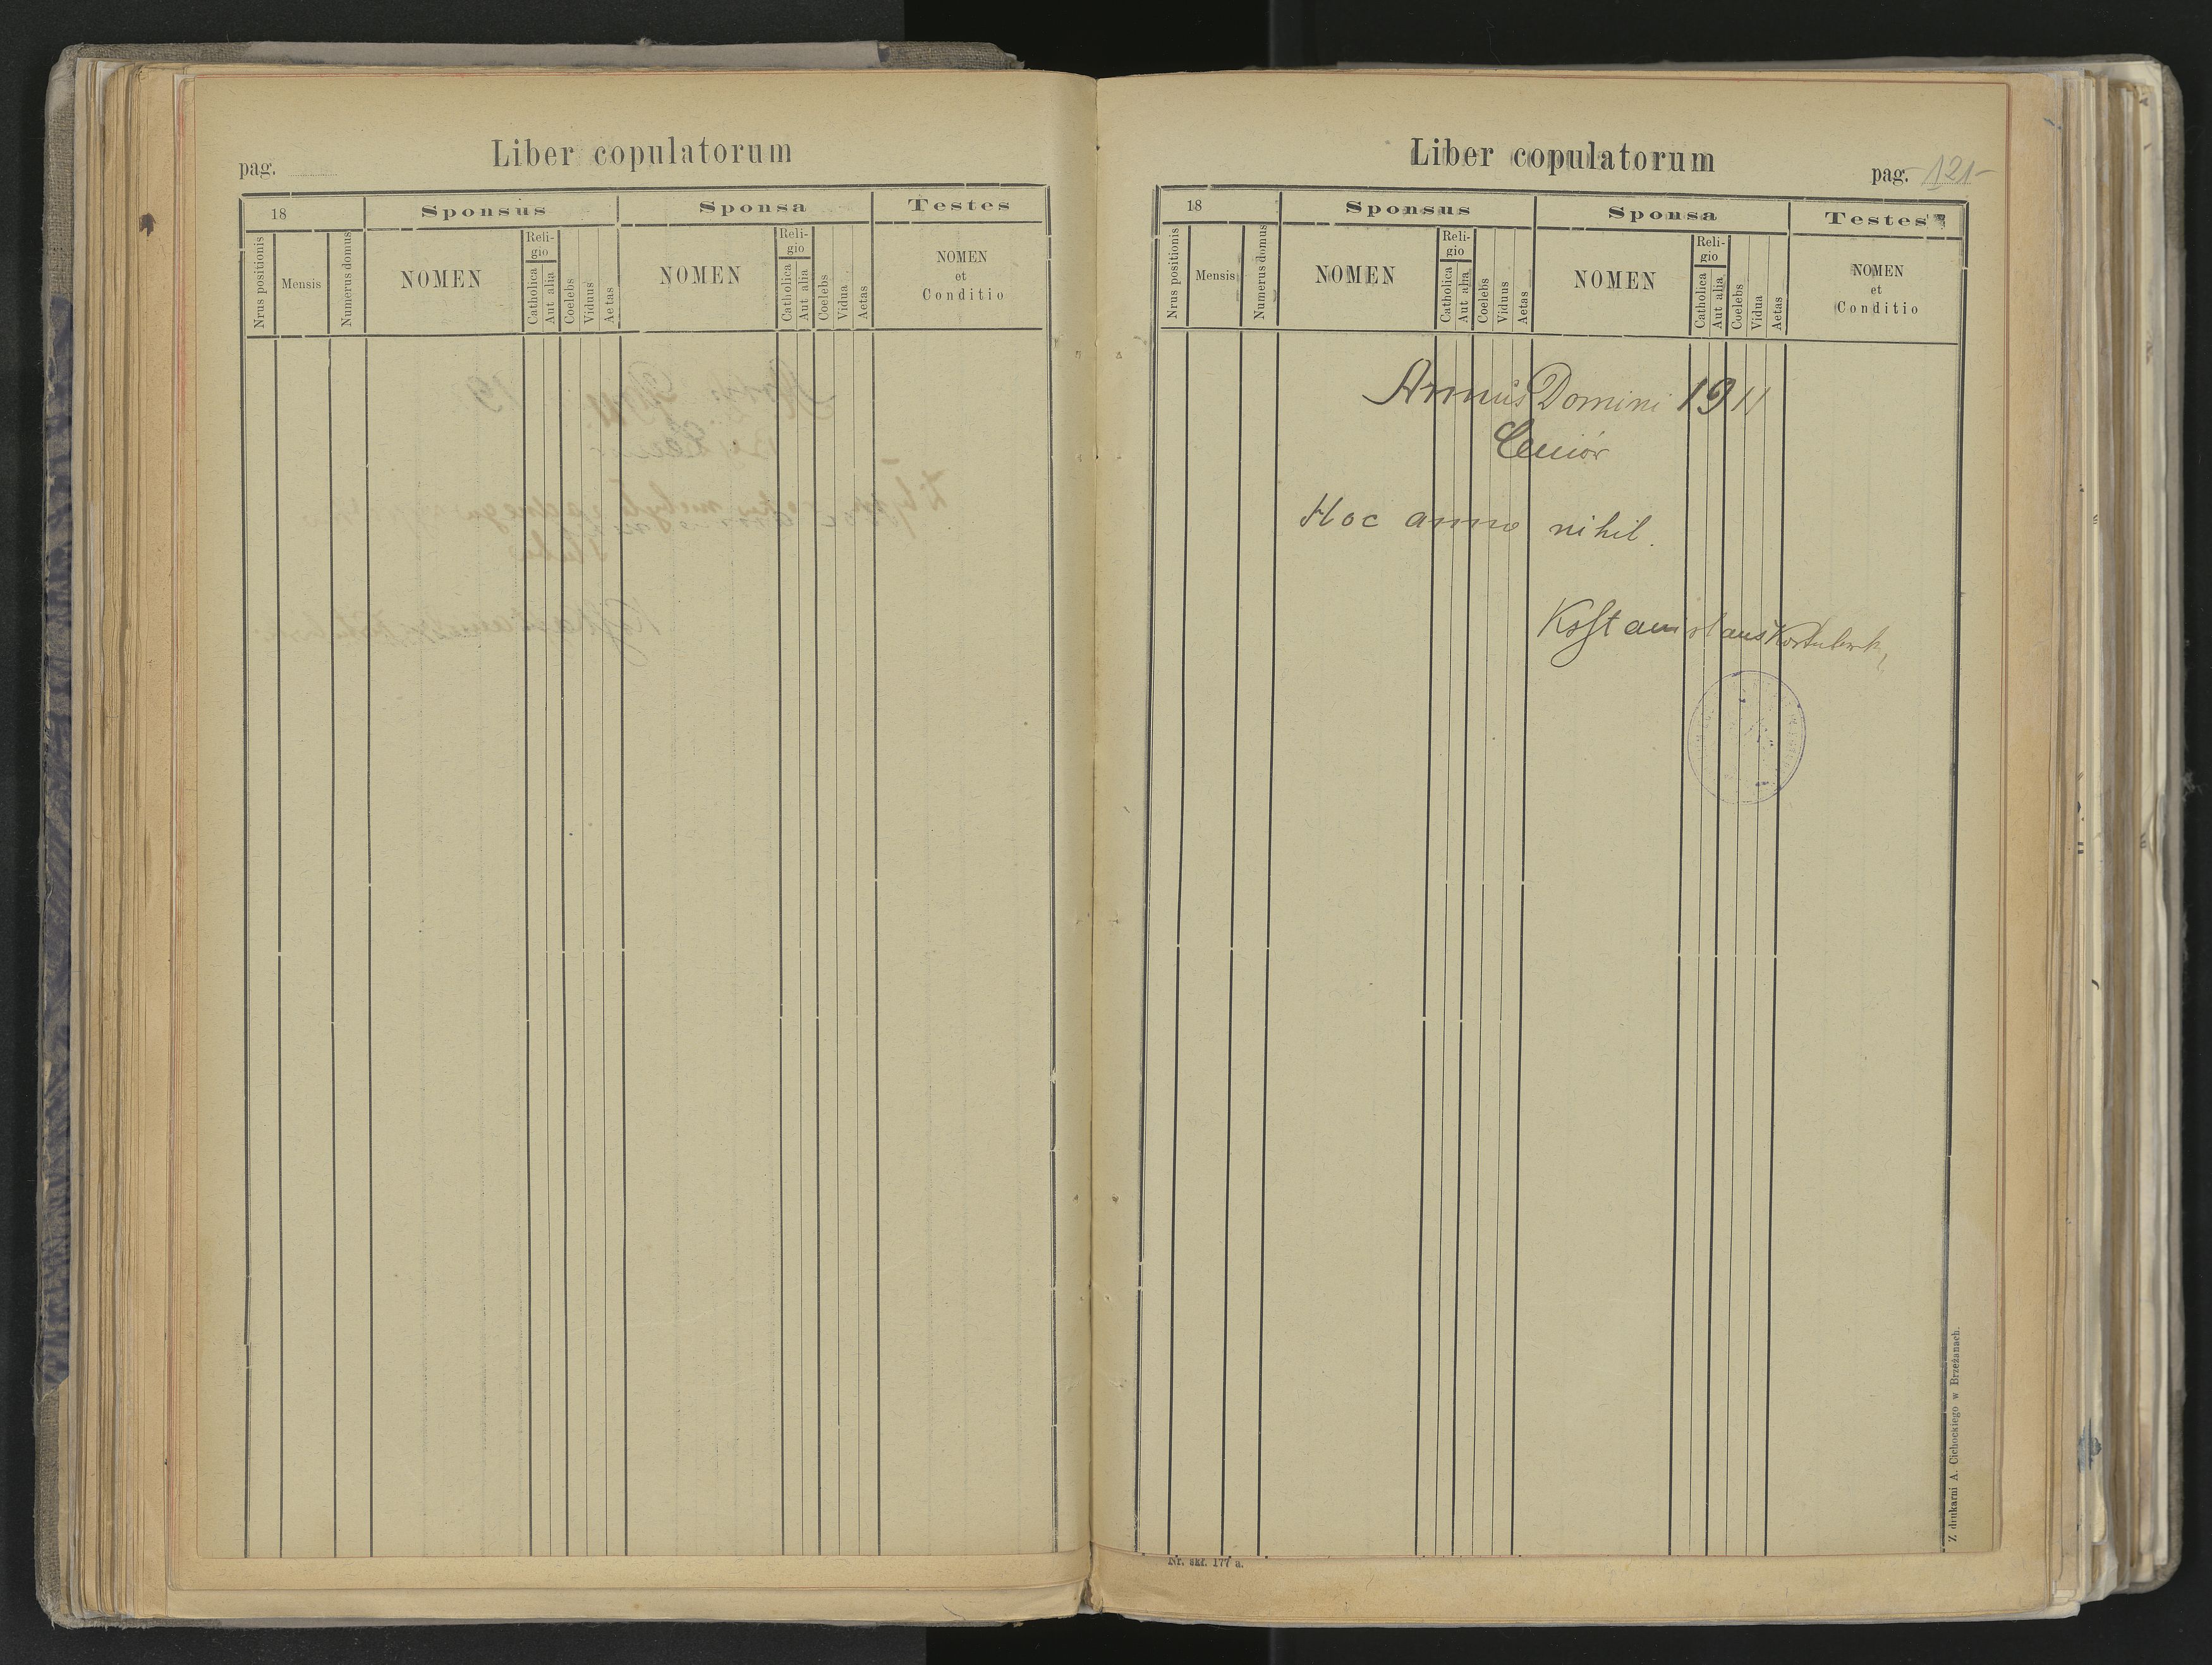 Liber copulatorum
pag.
18
Sponsus
Sponsa
Testes
Nrus positionis
Mensis
Numerus domus
NOMEN
Reli-
gio
Catholica
Aut alia
Coelebs
Viduus
Aetas
NOMEN
Reli-
gio
Catholica
Aut alia
Coelebs
Vidua
Aetas
NOMEN
et
Conditio
Liber copulatorum
pag. 121
18
Sponsus
Sponsa
Testes
Nrus positionis
Mensis
Numerus domus
NOMEN
Reli-
gio
Catholica
Aut alia
Coelebs
Viduus
Aetas
NOMEN
Reli-
gio
Catholica
Aut alia
Coelebs
Vidua
Aetas
NOMEN
et
Conditio
Annus Domini 1911
Hoc anno nihil.
Z drukarni A. Cichockiego w Brzeżanach.
Nr. skł. 177 a.